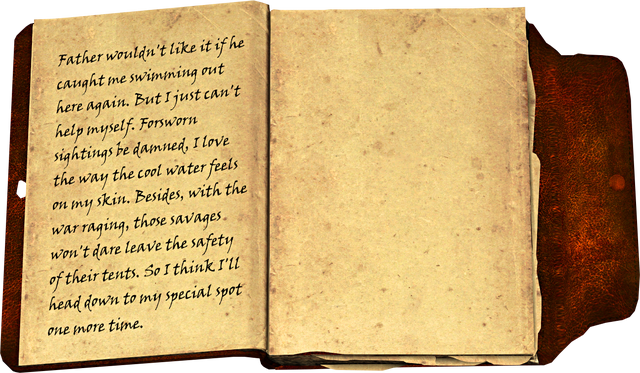 Father wouldn't like it if he
caught me swimming out
here again. But I just can't
help myself. Forsworn
sightings be damned, I love
the way the cool water feels
on my skin. Besides, with the
war raging, those savages
won't dare leave the safety
of their tents. So I think I'll
head down to my special spot
one more time.